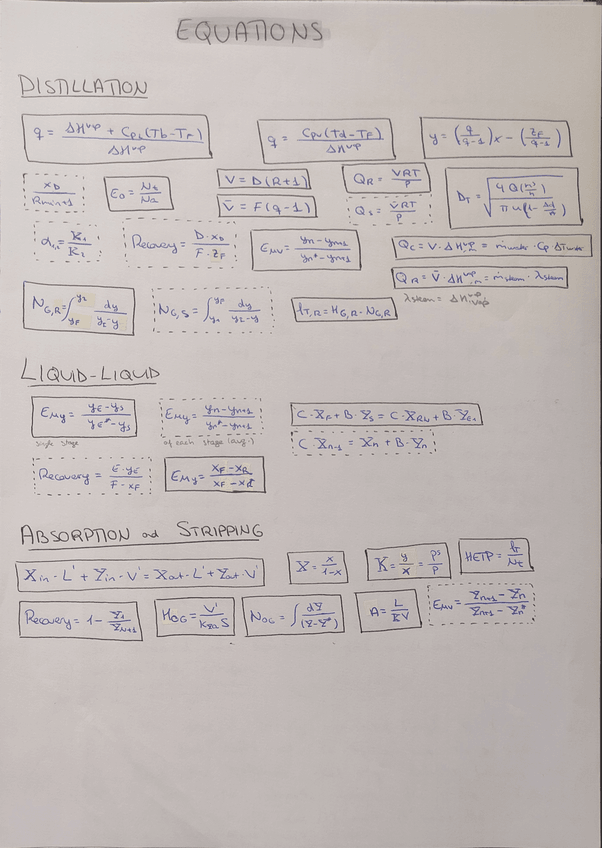 EQUATIONS
DISTILLATION
q = (ΔHvap + CpL(Tb-TF)) / ΔHvap
q = CpV(Td-TF) / ΔHvap
y = (q/(q-1))x - (zF/(q-1))
xD / Rmin+1
E0 = Nt/Na
V = D(R+1)
V̄ = F(q-1)
QR = VRT/P
QS = V̄RT/P
Recovery = D·xD / F·zF
EMV = (yn-yn+1) / (yn*-yn+1)
QC = V·ΔHvap = ṁwater·Cp ΔTwater
QR = V̄·ΔHvap = ṁsteam·λsteam
λsteam = ΔHvap
NG,R = ∫ dy
NG,S = ∫ dy
hT,R = HG,R·NG,R
LIQUID-LIQUID
EMy = (yE-yS) / (yE*-yS)
single stage
EMy = (yn-yn+1) / (yn*-yn+1)
of each stage (avg.)
Recovery = E·yE / F·xF
EMy = (xF-xR) / (xF-xR*)
ABSORPTION and STRIPPING
Xin·L' + Yin·V' = Xout·L' + Yout·V'
X = x/(1-x)
K = y/x = ps/P
HETP = hT/Nt
Recovery = 1 - Y1/YN+1
HOG = V'
NOG = ∫ dY/(Y-Y*)
A = L/KV
EMV = (Yn+1-Yn) / (Yn+1-Yn*)